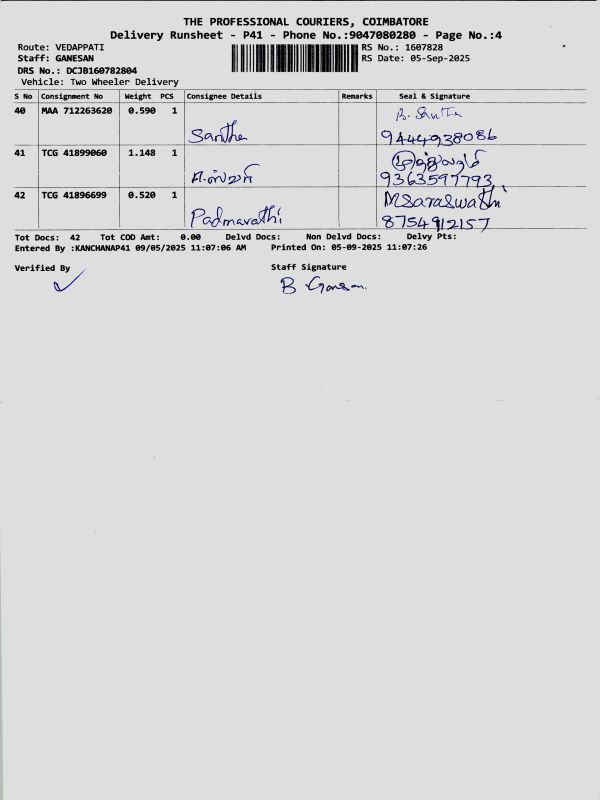 THE PROFESSIONAL COURIERS, COIMBATORE
Delivery Runsheet - P41 - Phone No.:9047080280 - Page No.:4
Route: VEDAPPATI
RS No.: 1607828
Staff: GANESAN
RS Date: 05-Sep-2025
DRS No.: DCJB160782804
Vehicle: Two Wheeler Delivery
S No Consignment No Weight PCS Consignee Details Remarks Seal & Signature
40 MAA 712263620 0.590 1 B. Santha
Santha 9444938086
41 TCG 41899060 1.148 1
9363597793
42 TCG 41896699 0.520 1 M Saraswathi
Padmavathi 8754912157
Tot Docs: 42 Tot COD Amt: 0.00 Delvd Docs: Non Delvd Docs: Delvy Pts:
Entered By :KANCHANAP41 09/05/2025 11:07:06 AM Printed On: 05-09-2025 11:07:26
Verified By Staff Signature
B Ganesan.